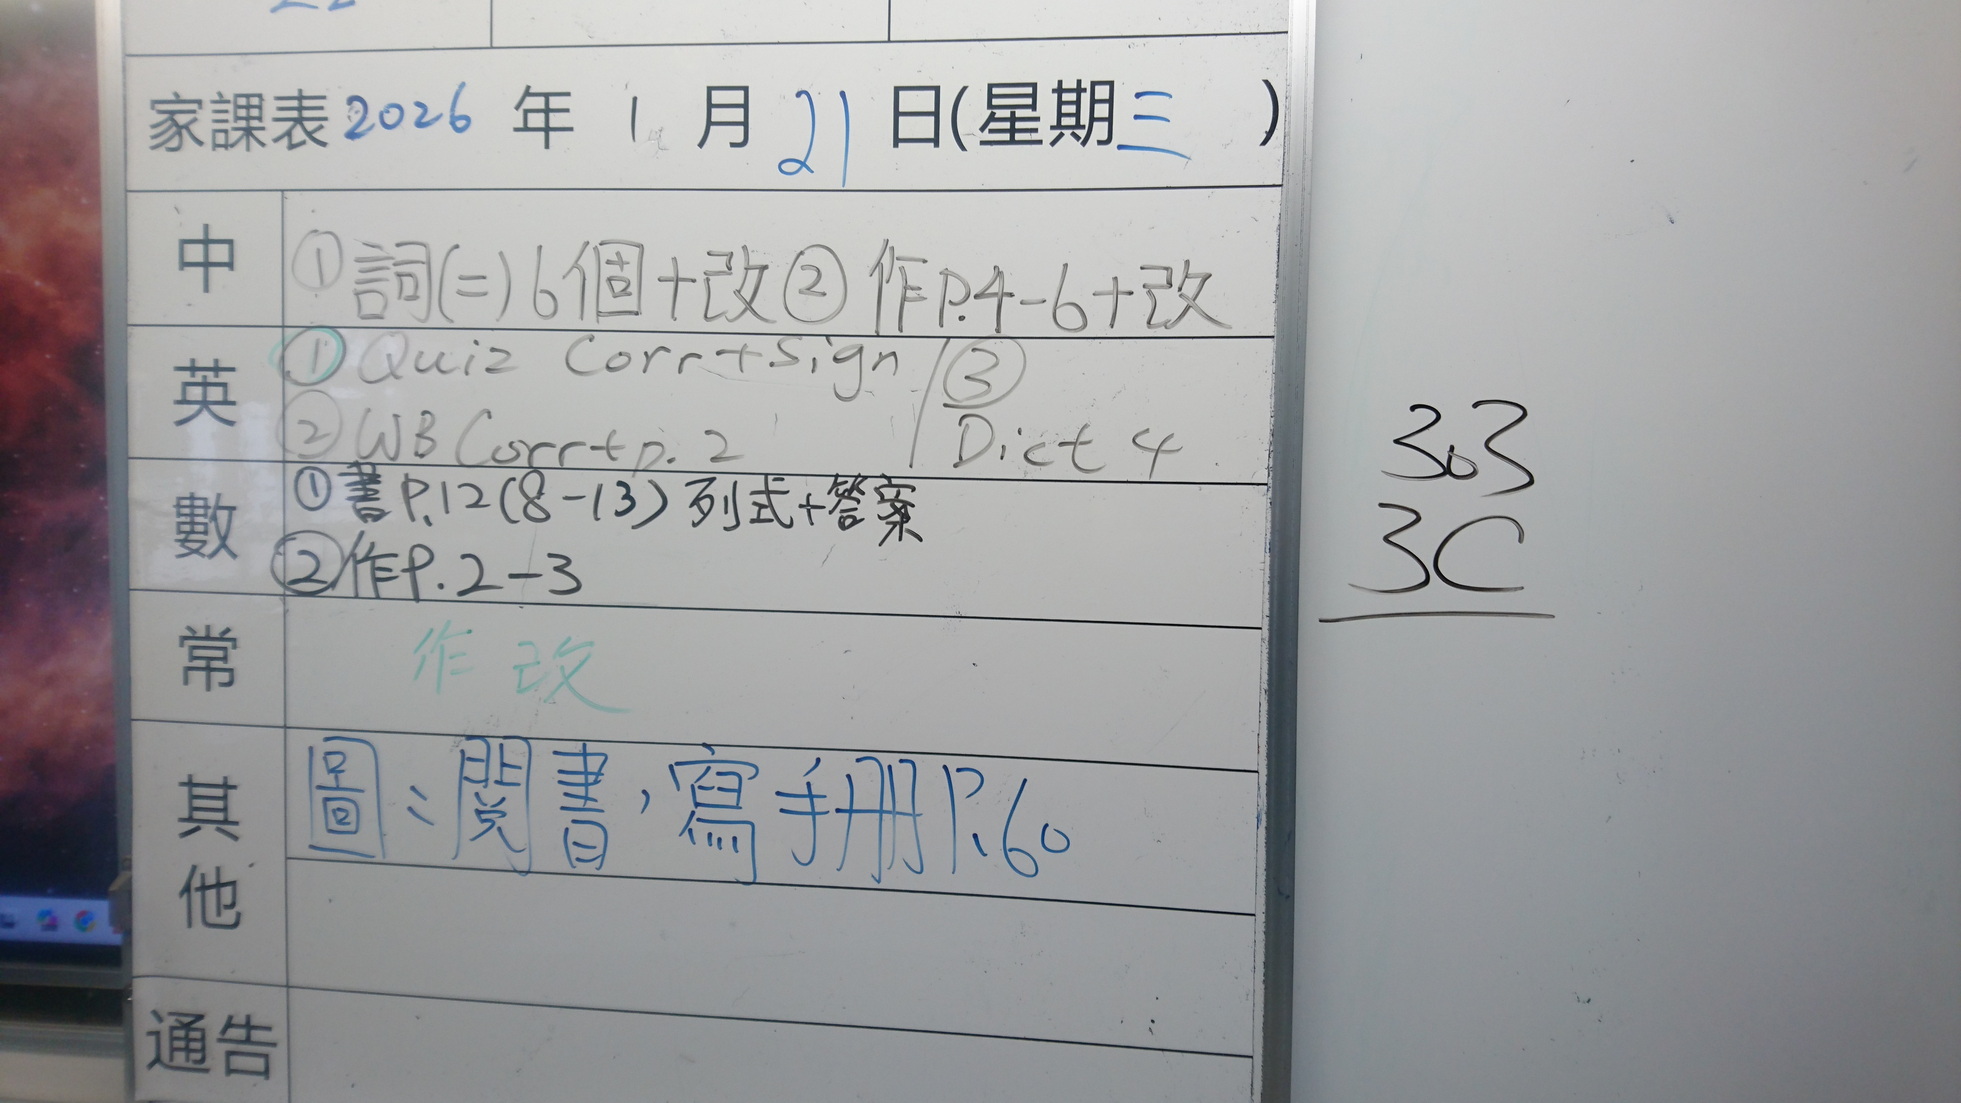 家課表 2026 年 1 月 21 日(星期三 )
中 ①詞(二)6個+改②作P.4-6+改
英 ①Quiz Corr+Sign / ③
②WB Corr+p.2 / Dict 4
數 ①書P.12(8-13)列式+答案
②作P.2-3
常 作改
其他 圖:閱書,寫手冊P.60
通告
303
3C